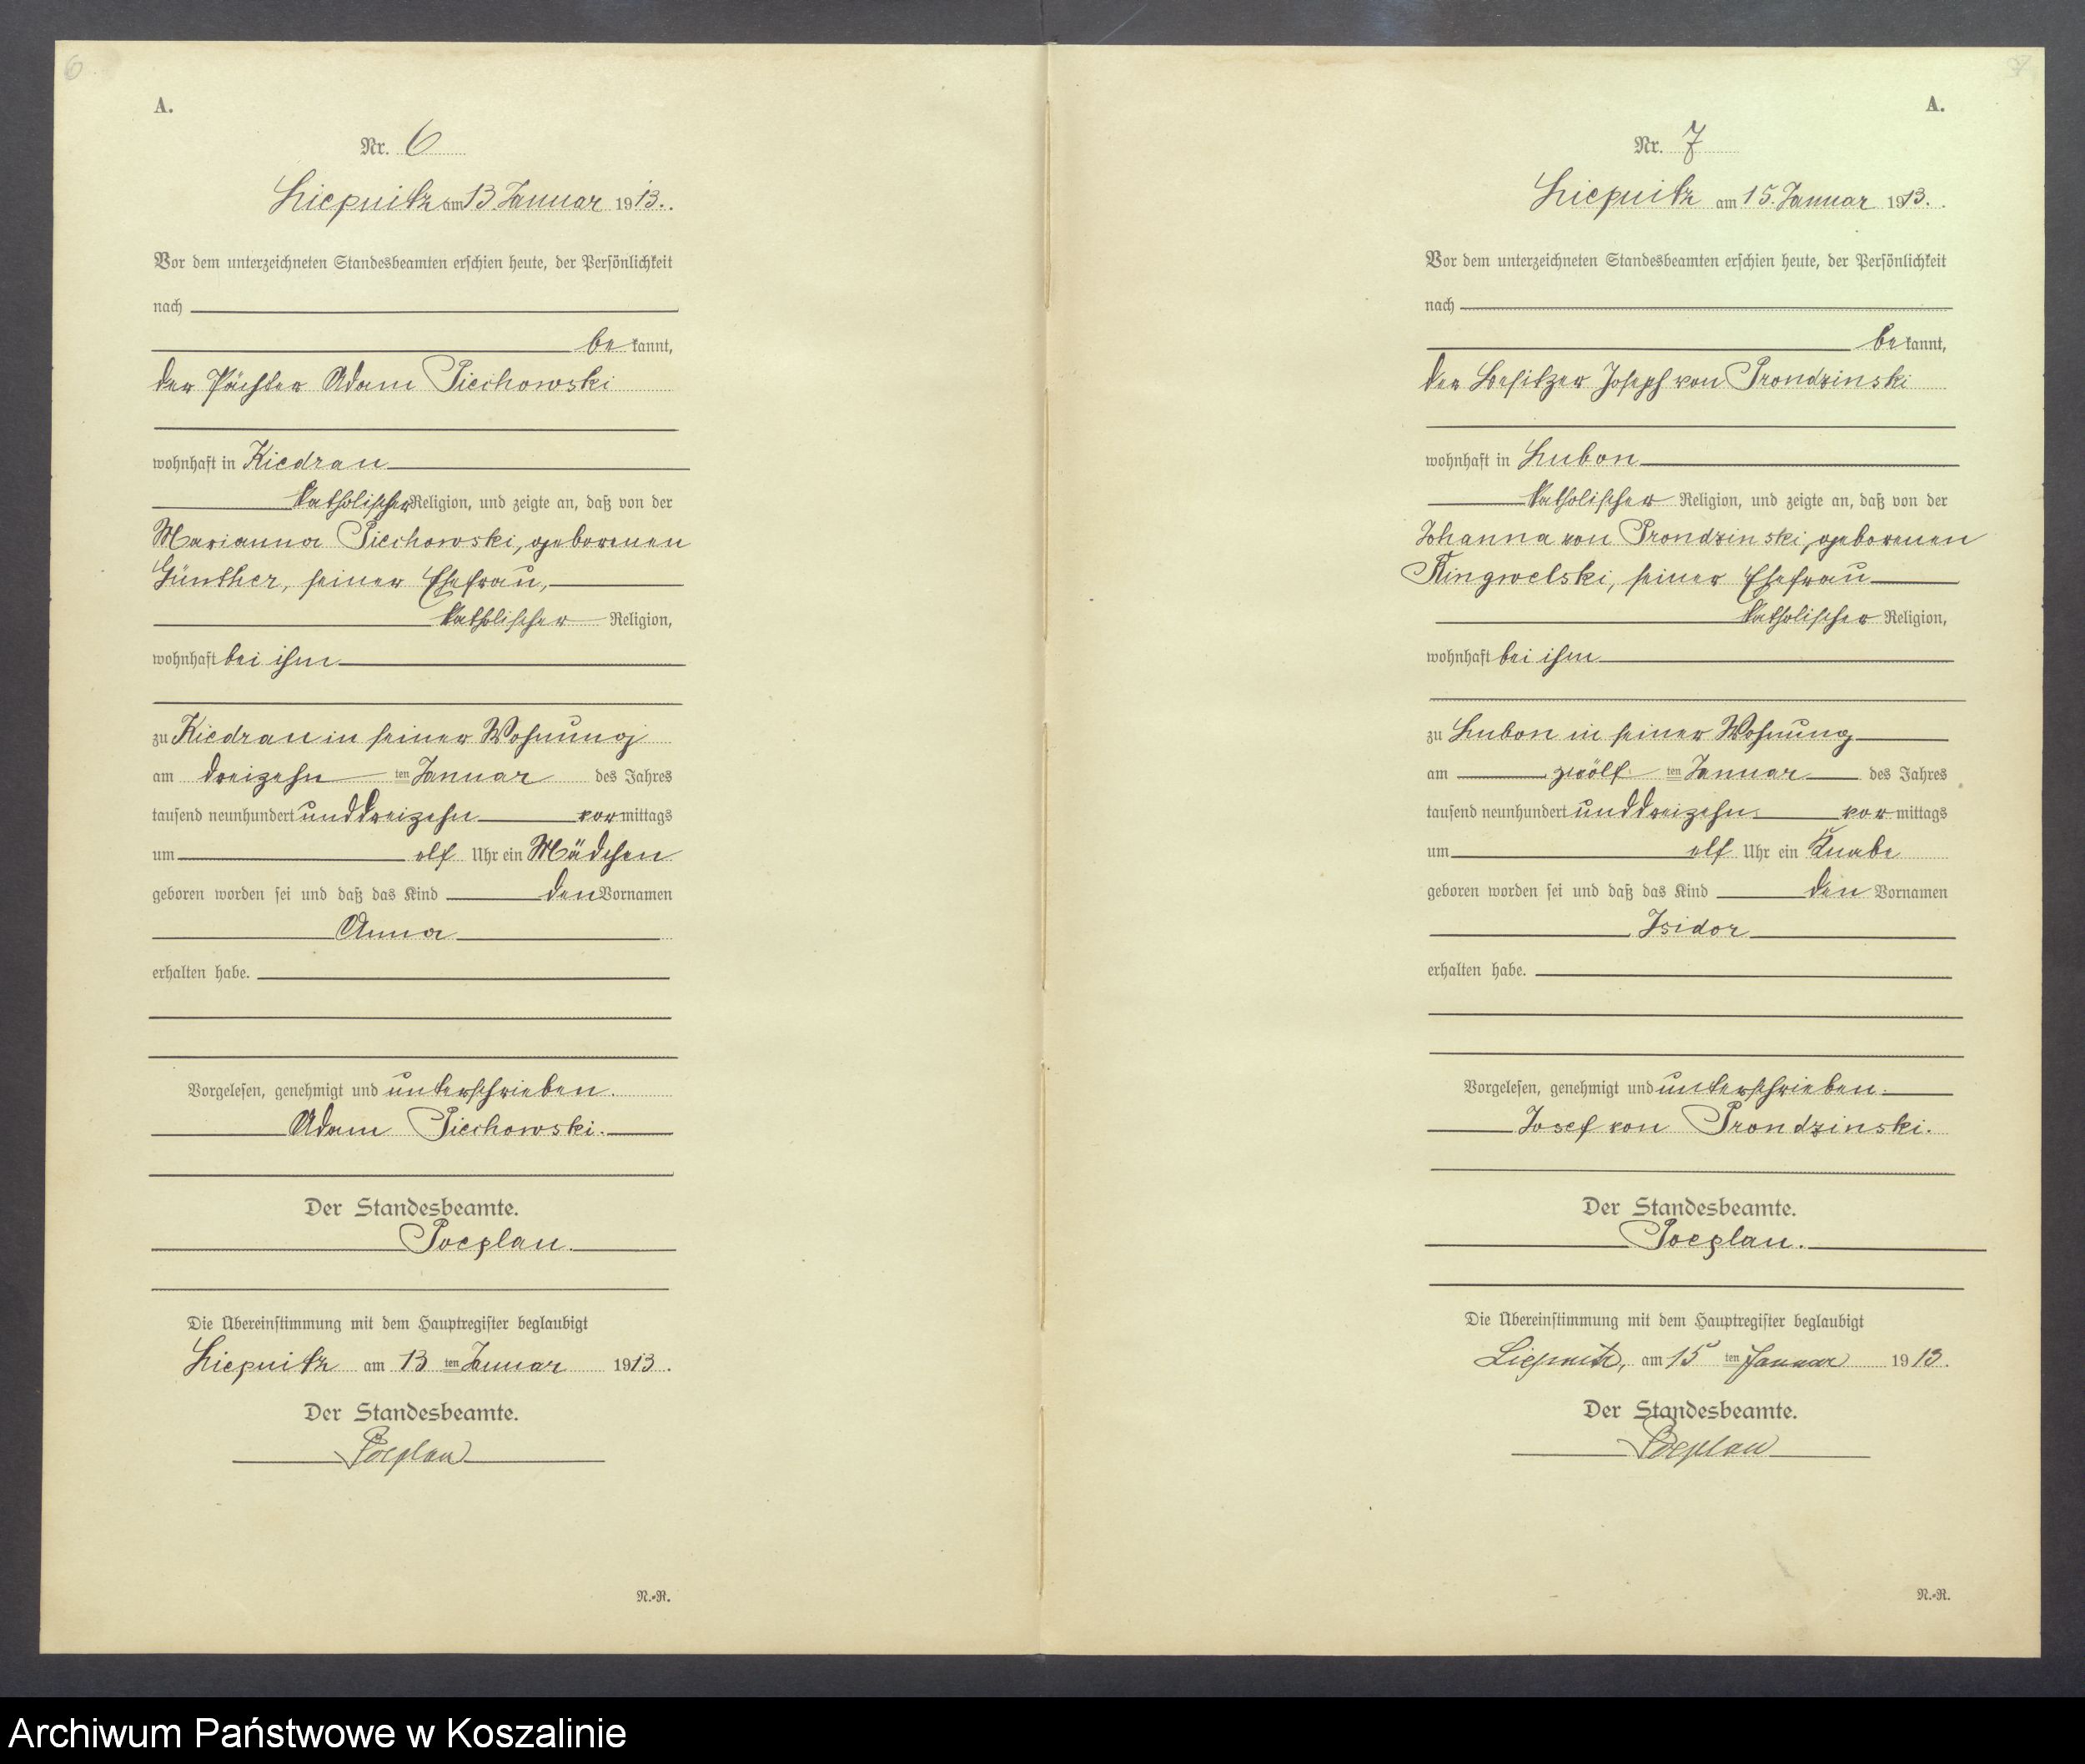 6
A.
Nr. 6
Liepnitz am 13. Januar 1913.
Vor dem unterzeichneten Standesbeamten erschien heute, der Persönlichkeit
nach
be kannt,
der Pächter Adam Piechowski
wohnhaft in Kiedrau
katholischer Religion, und zeigte an, daß von der
Marianna Piechowski, geborenen
Günther, seiner Ehefrau,
katholischer Religion,
wohnhaft bei ihm
zu Kiedrau in seiner Wohnung
am dreizehn ten Januar des Jahres
tausend neunhundert unddreizehn vor mittags
um elf Uhr ein Mädchen
geboren worden sei und daß das Kind den Vornamen
Anna
erhalten habe.
Vorgelesen, genehmigt und unterschrieben.
Adam Piechowski.
Der Standesbeamte.
Poeplau.
Die Übereinstimmung mit dem Hauptregister beglaubigt
Liepnitz am 13 ten Januar 1913.
Der Standesbeamte.
Poeplau
N.-R.
7
A.
Nr. 7
Liepnitz am 15. Januar 1913.
Vor dem unterzeichneten Standesbeamten erschien heute, der Persönlichkeit
nach
be kannt,
der Besitzer Joseph von Prondzinski
wohnhaft in Lubon
katholischer Religion, und zeigte an, daß von der
Johanna von Prondzinski, geborenen
Ringwelski, seiner Ehefrau
katholischer Religion,
wohnhaft bei ihm
zu Lubon in seiner Wohnung
am zwölf ten Januar des Jahres
tausend neunhundert unddreizehn vor mittags
um elf Uhr ein Knabe
geboren worden sei und daß das Kind den Vornamen
Isidor
erhalten habe.
Vorgelesen, genehmigt und unterschrieben.
Josef von Prondzinski.
Der Standesbeamte.
Poeplau.
Die Übereinstimmung mit dem Hauptregister beglaubigt
Liepnitz, am 15 ten Januar 1913.
Der Standesbeamte.
Poeplau
N.-R.
Archiwum Państwowe w Koszalinie